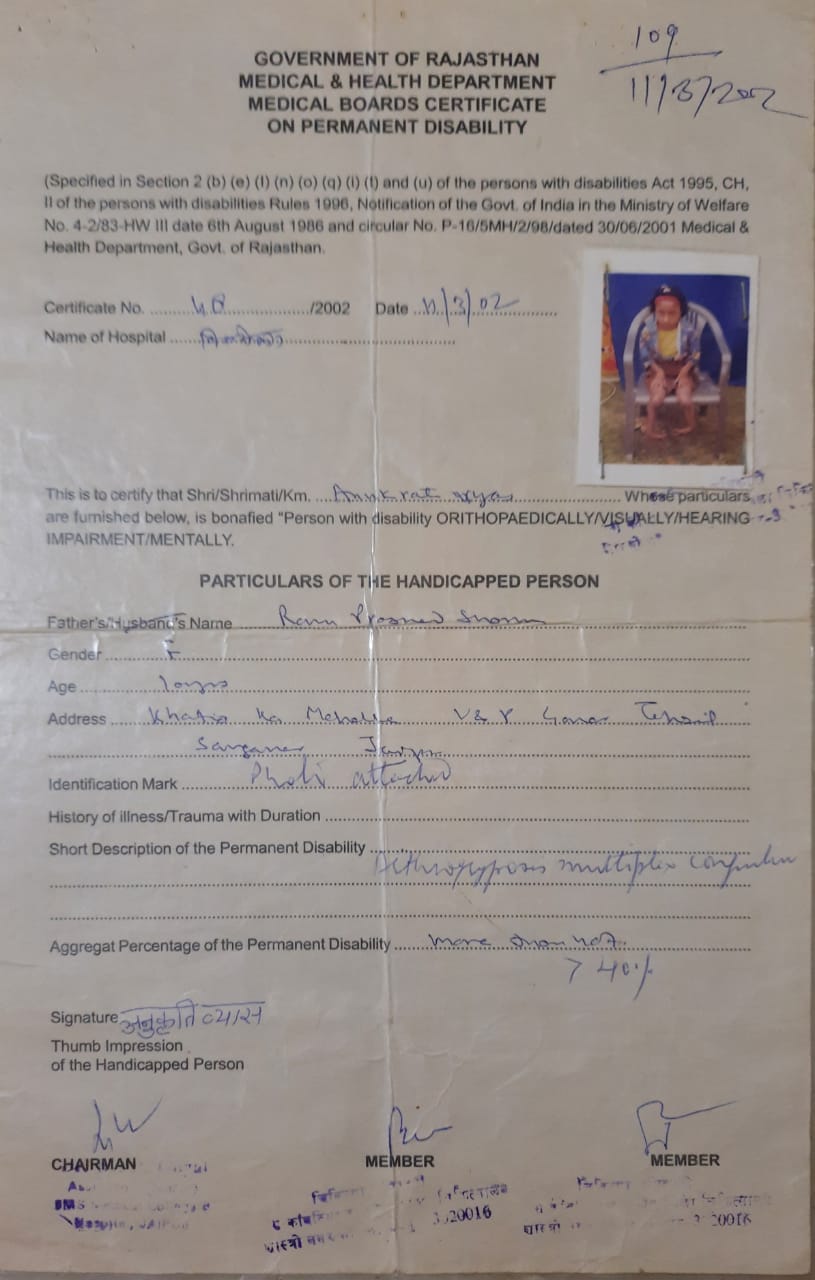 109
11/3/2002
GOVERNMENT OF RAJASTHAN
MEDICAL & HEALTH DEPARTMENT
MEDICAL BOARDS CERTIFICATE
ON PERMANENT DISABILITY
(Specified in Section 2 (b) (e) (l) (n) (o) (q) (i) (t) and (u) of the persons with disabilities Act 1995, CH,
II of the persons with disabilities Rules 1996, Notification of the Govt. of India in the Ministry of Welfare
No. 4-2/83-HW III date 6th August 1986 and circular No. P-16/5MH/2/98/dated 30/06/2001 Medical &
Health Department, Govt. of Rajasthan.
Certificate No. ......................./2002 Date 11/3/02
Name of Hospital
This is to certify that Shri/Shrimati/Km. Whose particulars
are furnished below, is bonafied "Person with disability ORITHOPAEDICALLY/VISUALLY/HEARING
IMPAIRMENT/MENTALLY.
PARTICULARS OF THE HANDICAPPED PERSON
Father's/Husband's Name Ram
Gender F
Age 10yrs
Address Khatio Ka V & P Tehsil
Sanganer Jaipur
Identification Mark Photo attached
History of illness/Trauma with Duration
Short Description of the Permanent Disability
multiplex
Aggregat Percentage of the Permanent Disability more than 40%
> 40%
Signature अनुकृति व्यास
Thumb Impression
of the Handicapped Person
CHAIRMAN MEMBER MEMBER
SMS